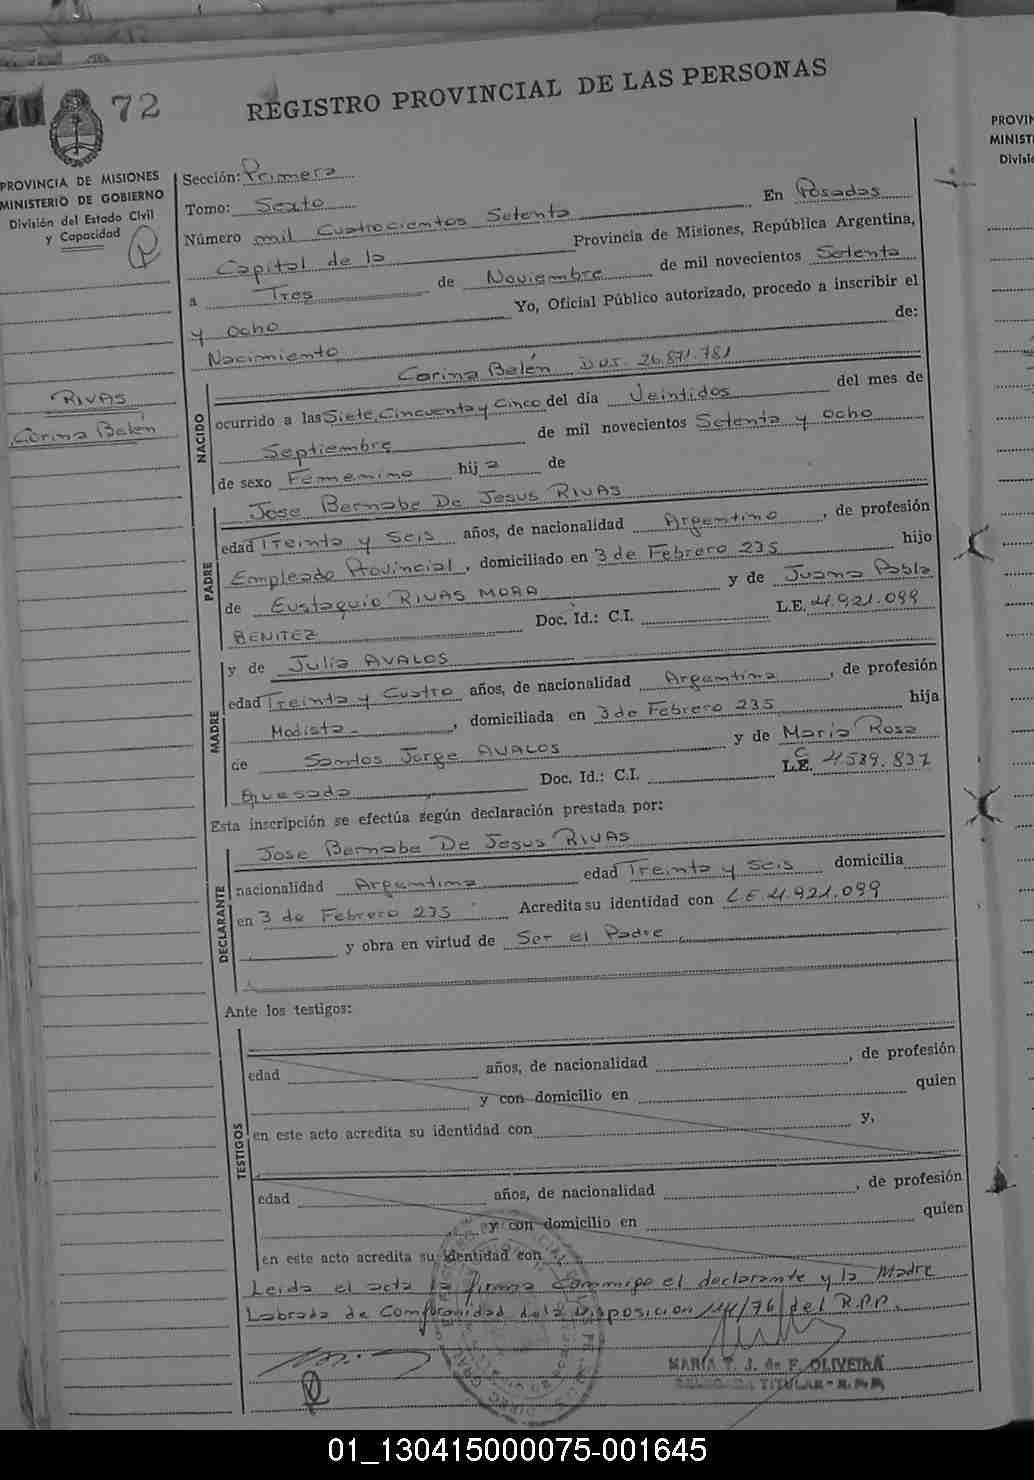 72
REGISTRO PROVINCIAL DE LAS PERSONAS
PROVINCIA DE MISIONES
MINISTERIO DE GOBIERNO
División del Estado Civil
y Capacidad
RIVAS
Corina Belén
Sección: Primera
Tomo: Sexto
Número mil Cuatrocientos Setenta En Posadas
Capital de la Provincia de Misiones, República Argentina,
a Tres de Noviembre de mil novecientos Setenta
y Ocho Yo, Oficial Público autorizado, procedo a inscribir el
Nacimiento de:
NACIDO
Corina Belén 26.871.781
ocurrido a las Siete, Cincuenta y Cinco del día Veintidos del mes de
Septiembre de mil novecientos Setenta y Ocho
de sexo Femenino hija de
PADRE
Jose Bernabe De Jesus RIVAS
edad Treinta y Seis años, de nacionalidad Argentino, de profesión
Empleado Provincial, domiciliado en 3 de Febrero 235 hijo
de Eustaquio RIVAS MORA y de Juana Pabla
BENITEZ Doc. Id.: C.I. L.E. 4.921.099
MADRE
y de Julia AVALOS
edad Treinta y Cuatro años, de nacionalidad Argentina, de profesión
Modista, domiciliada en 3 de Febrero 235 hija
de Santos Jorge AVALOS y de Maria Rosa
Quesada Doc. Id.: C.I. L.C. 4539.837
Esta inscripción se efectúa según declaración prestada por:
DECLARANTE
Jose Bernabe De Jesus RIVAS
nacionalidad Argentina edad Treinta y Seis domicilia
en 3 de Febrero 235 Acredita su identidad con L.E. 4.921.099
y obra en virtud de Ser el Padre
Ante los testigos:
TESTIGOS
edad años, de nacionalidad , de profesión
y con domicilio en quien
en este acto acredita su identidad con y,
edad años, de nacionalidad , de profesión
y con domicilio en quien
en este acto acredita su identidad con
Leida el acta la firma Conmigo el declarante y la Madre
Labrada de Conformidad de la Disposicion /76 del R.P.P.
MARIA T. J. de F. OLIVEIRA
DELEGADA TITULAR - R.P.P.
PROVIN
MINIST
Divisi
01_130415000075-001645